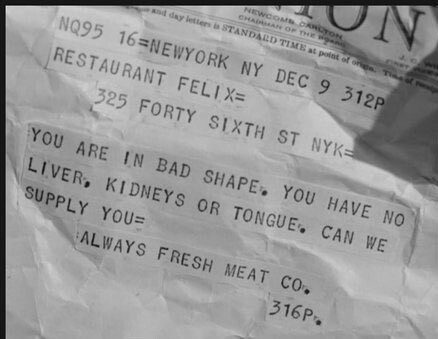 ION
NEWCOMB CARLTON
CHAIRMAN OF THE BOARD
and day letters is STANDARD TIME at point of origin. Time of
J. C.
NQ95 16=NEWYORK NY DEC 9 312P
RESTAURANT FELIX=
325 FORTY SIXTH ST NYK=
YOU ARE IN BAD SHAPE. YOU HAVE NO
LIVER, KIDNEYS OR TONGUE. CAN WE
SUPPLY YOU=
ALWAYS FRESH MEAT CO.
316P.